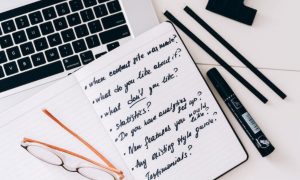 • When content site was made?
• What do you like about it?
• What don't you like?
• Statistics?
• Do you have analytics set up?
New features you would like.
Any existing style guide?
Testimonials?